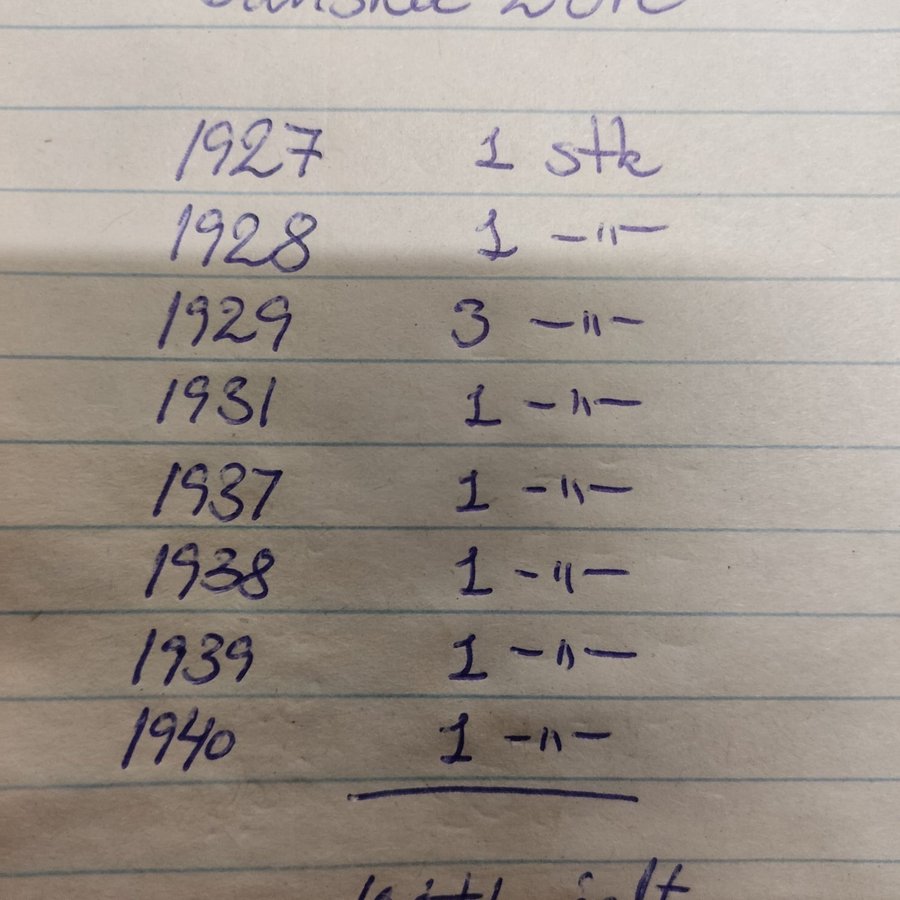 1927 1 stk
1928 1 -"-
1929 3 -"-
1931 1 -"-
1937 1 -"-
1938 1 -"-
1939 1 -"-
1940 1 -"-